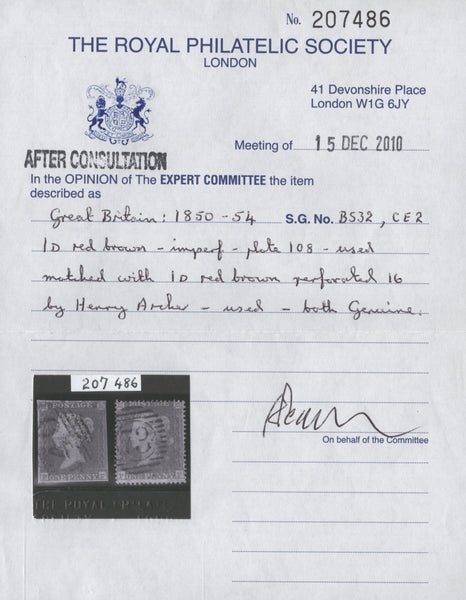 No. 207486
THE ROYAL PHILATELIC SOCIETY
LONDON
41 Devonshire Place
London W1G 6JY
Meeting of 15 DEC 2010
AFTER CONSULTATION
In the OPINION of The EXPERT COMMITTEE the item
described as
Great Britain: 1850-54 S.G. No. BS32, CE2
1D red brown - imperf - plate 108 - used
matched with 1D red brown perforated 16
by Henry Archer - used - both Genuine.
207 486
On behalf of the Committee
POSTAGE
ONE PENNY
POSTAGE
ONE PENNY
THE ROYAL